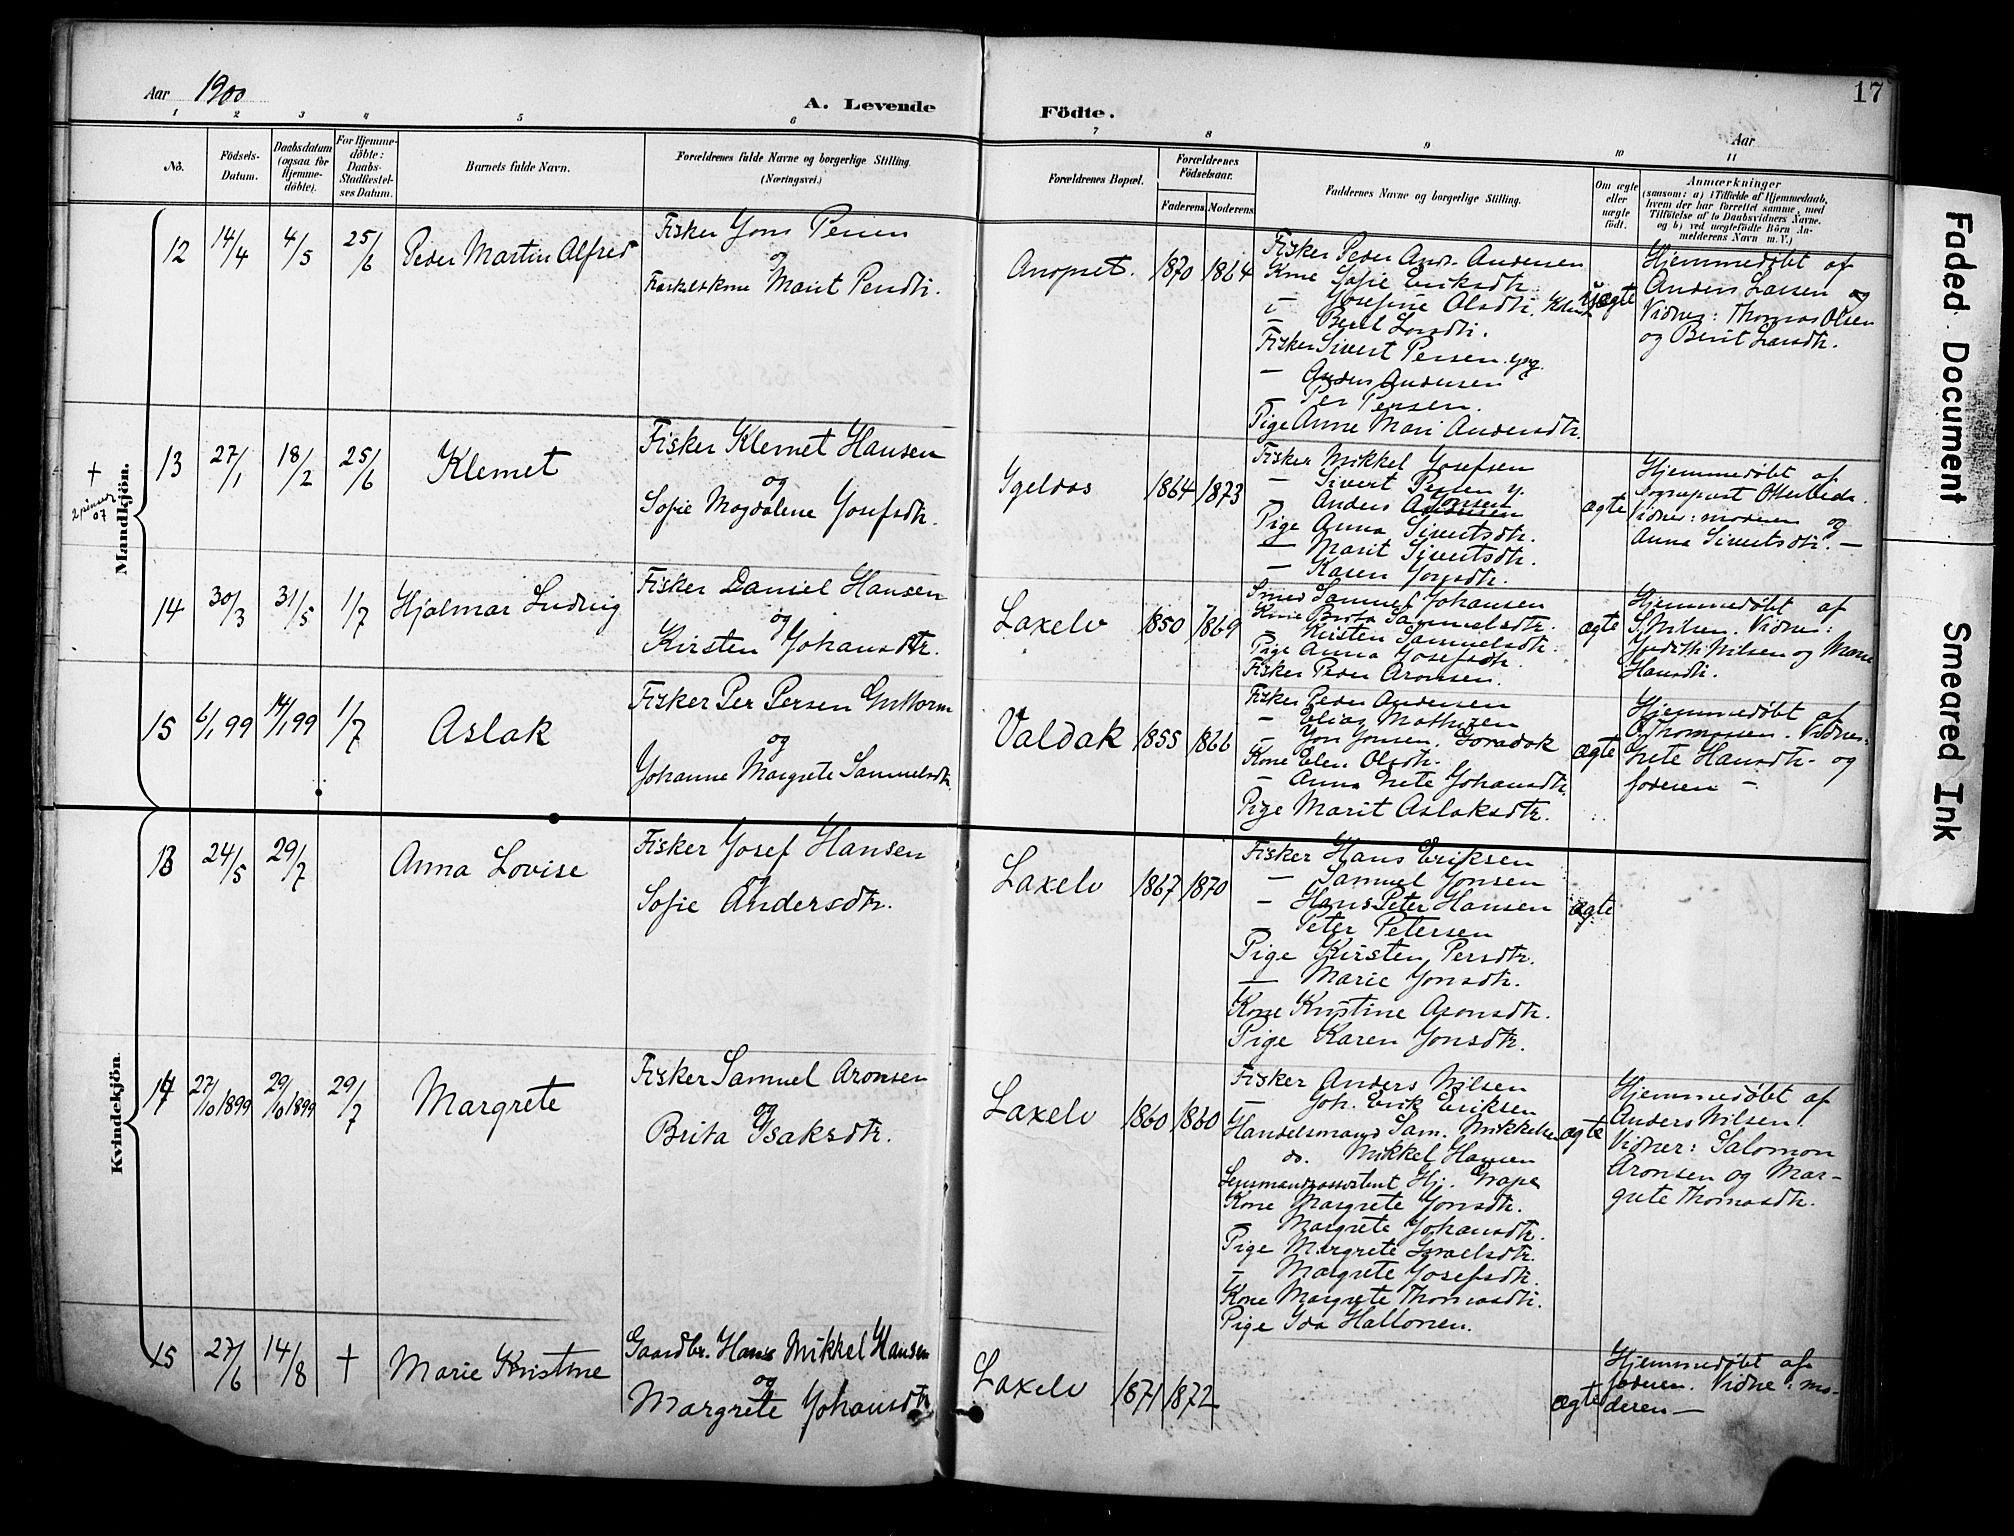 Aar 1900
A. Levende
Födte.
Aar
17
1 2 3 4 5 6 7 8 9 10 11
No.
Födsels-
Datum.
Daabsdatum
(ogsaa for
Hjemme-
döbte).
For Hjemme-
döbte:
Daabs-
Stadfæstel-
ses Datum.
Barnets fulde Navn.
Forældrenes fulde Navne og borgerlige Stilling.
(Næringsvei.)
Forældrenes Bopæl.
Forældrenes
Födselsaar.
Faderens Moderens
Faddernes Navne og borgerlige Stilling.
Om ægte
eller
uægte
födt.
Anmærkninger
(saasom: a) i Tilfælde af Hjemmedaab,
hvem der har forrettet samme, med
Tilföielse af to Daabsvidners Navne,
og b) ved uægtefödte Börn An-
melderens Navn m. V.)
Mandkjön.
12 14/4 4/5 25/6 Peder Martin Alfred
Fisker Jons Persen
og
Marit Persdtr.
1870 1864
Fisker Peder Andr. Andersen
Kone Sofie Eriksdtr.
— Josefine Olsdtr.
— Berit Larsdtr.
Fisker Sivert Persen yng.
— Anders Andersen
Per Persen.
Pige Anne Mari Andersdtr.
uægte
Hjemmedøbt af
Anders Larsen og
Vidner: Thomas Olsen
og Berit Larsdtr.
+
07
13 27/1 18/2 25/6 Klemet
Fisker Klemet Hansen
og
Sofie Magdalene Josefsdtr.
Igeldas 1864 1873
Fisker Mikkel Josefsen
— Sivert Persen y.
— Anders Jonsen
Pige Anna Sivertsdtr.
— Marit Sivertsdtr.
— Karen Jonsdtr.
ægte
Hjemmedøbt af
Sogneprest Otterbech.
Vidner: moderen og
Anna Sivertsdtr. —
14 30/3 31/5 1/7 Hjalmar Ludvig
Fisker Daniel Hansen
og
Kirsten Johansdtr.
Laxelv 1850 1869
Smed Samuel Johansen
Kone Brita Samuelsdtr.
Kirsten Samuelsdtr.
Pige Anna Josefsdtr.
Fisker Peder Aronsen.
ægte
Hjemmedøbt af
S. Nilsen. Vidner:
Judith Nilsen og Marie
Hansdtr.
15 6/1 99 14/1 99 1/7 Aslak
Fisker Per Persen Guttorm
og
Johanne Margrete Samuelsdtr.
Valdak 1855 1866
Fisker Peder Andersen
— Elias Mathisen
— Jon Jonsen.
Kone Elen Olsdtr.
— Anna Grete Johansdtr.
Pige Marit Aslaksdtr.
ægte
Hjemmedøbt af
O. Thomassen. Vidner:
Grete Hansdtr. og
faderen —
Kvindekjön.
13 24/5 29/7 Anna Lovise
Fisker Josef Hansen
og
Sofie Andersdtr.
Laxelv 1867 1870
Fisker Hans Eriksen
— Samuel Jonsen
— Hans Peter Hansen
Peter Petersen
Pige Kirsten Persdtr.
— Marie Jonsdtr.
Kone Kristine Aronsdtr.
Pige Karen Jonsdtr.
ægte
14 27/10 1899 29/10 1899 29/7 Margrete
Fisker Samuel Aronsen
og
Brita Isaksdtr.
Laxelv 1860 1860
Fisker Anders Nilsen
— Joh. Erik Eriksen
Handelsmand Sam. Mikkelsen
do. Mikkel Hansen
Lensmandsassistent Hj. Grape
Kone Margrete Jonsdtr.
Margrete Johansdtr.
Pige Margrete Israelsdtr.
— Margrete Josefsdtr.
Kone Margrete Thomasdtr.
Pige Ida Hallonen.
ægte
Hjemmedøbt af
Anders Nilsen.
Vidner: Salomon
Aronsen og Mar-
grete Thomasdtr.
15 27/6 14/8 + Marie Kristine
Gaardbr. Hans Mikkel Hansen
og
Margrete Johansdtr.
Laxelv 1871 1872
ægte
Hjemmedøbt af
faderen. Vidne: mo-
deren —
Faded Document Smeared Ink